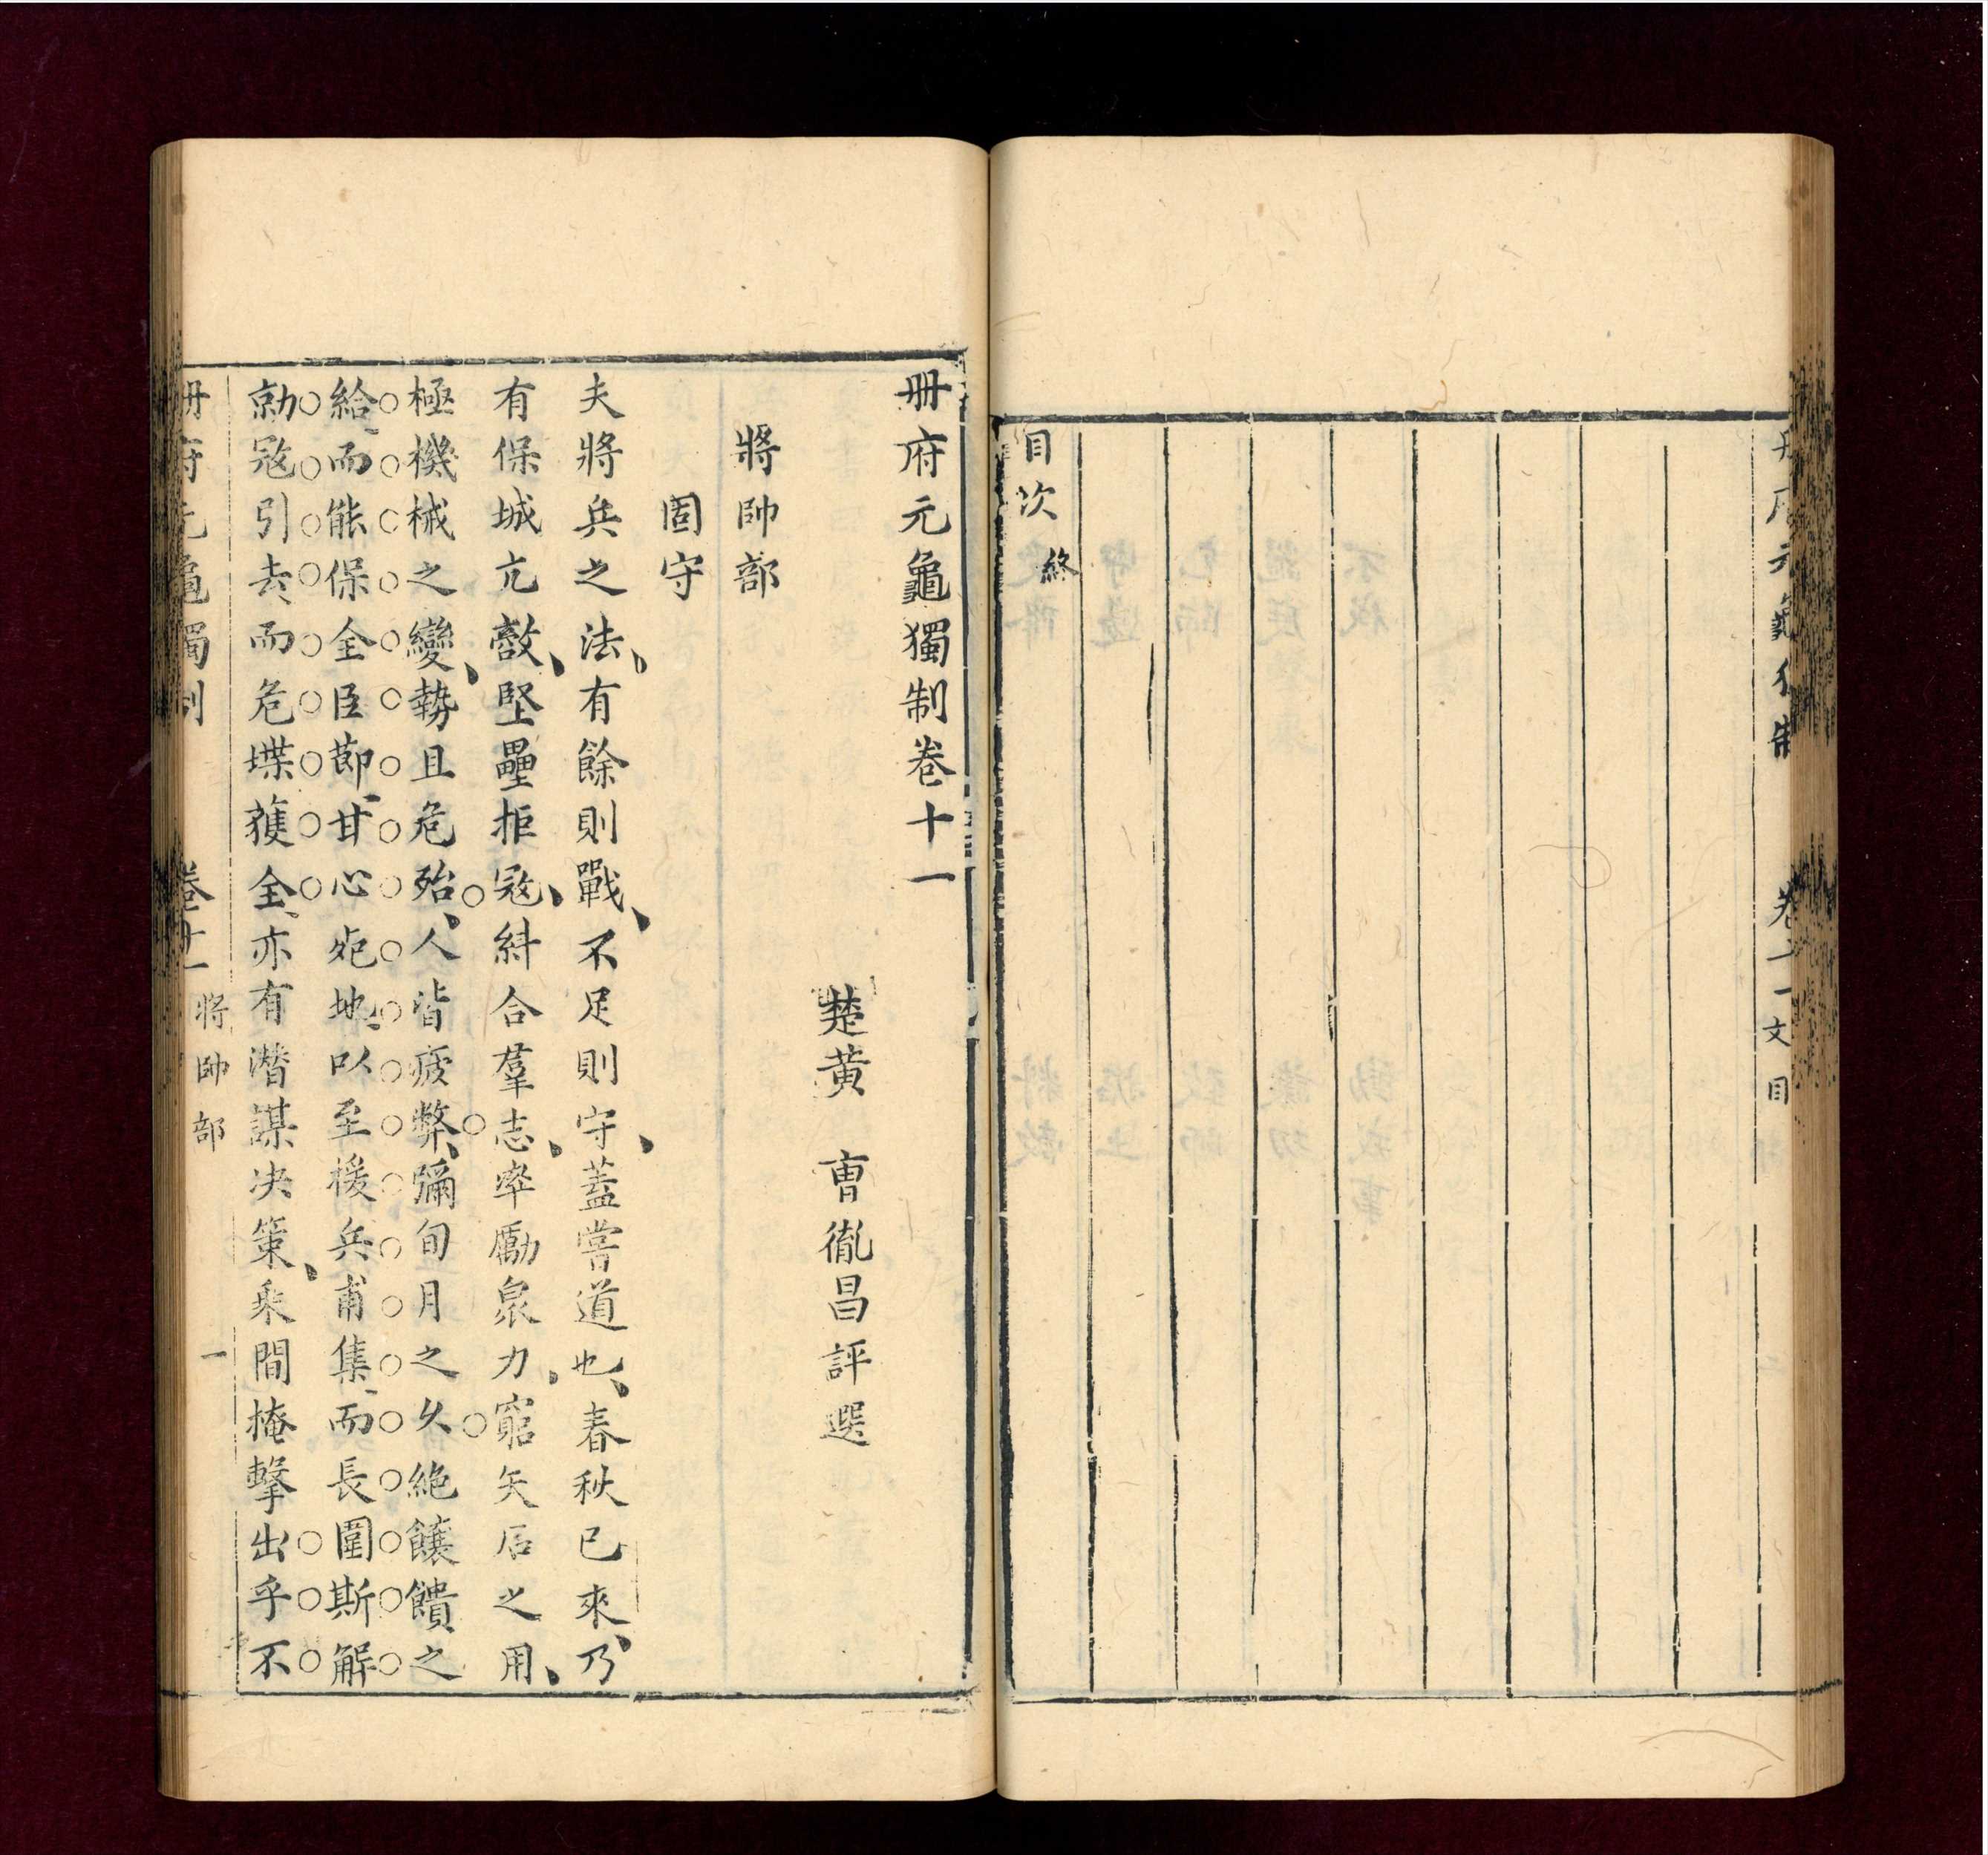 冊府元龜獨制 卷十一 文目
目次終
冊府元龜獨制卷十一
楚黄 曺胤昌評選
將帥部
固守
夫將兵之法有餘則戰、不足則守、蓋嘗道也、春秋已來、乃
有保城亢敵、堅壘拒寇、糾合羣志、率勵衆力、窮矢石之用、
極機械之變、勢且危殆、人皆疲弊、彌旬月之久絶饟饋之
給、而能保全臣節、甘心死地、以至援兵甫集、而長圍斯解
勍寇引去、而危堞獲全、亦有潛謀決策、乘間掩擊出乎不
冊府元龜獨制 卷十一 將帥部 一